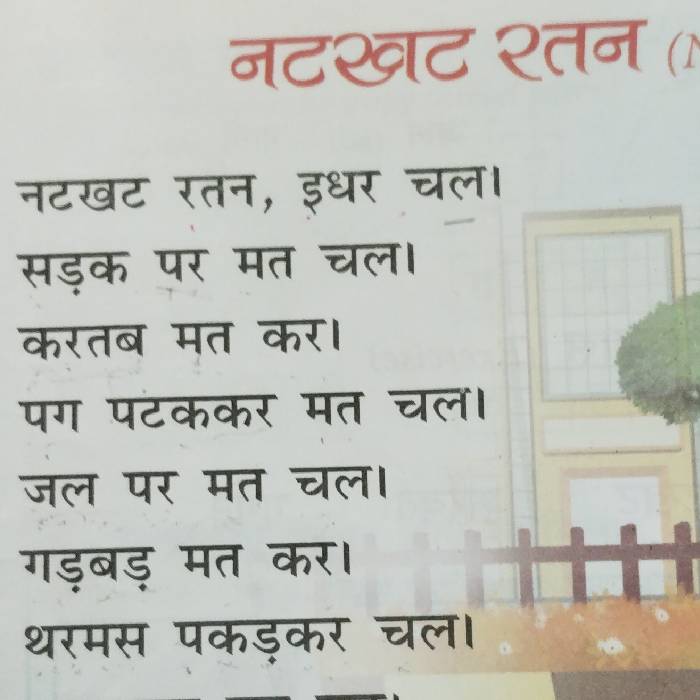 नटखट रतन
नटखट रतन, इधर चल।
सड़क पर मत चल।
करतब मत कर।
पग पटककर मत चल।
जल पर मत चल।
गड़बड़ मत कर।
थरमस पकड़कर चल।